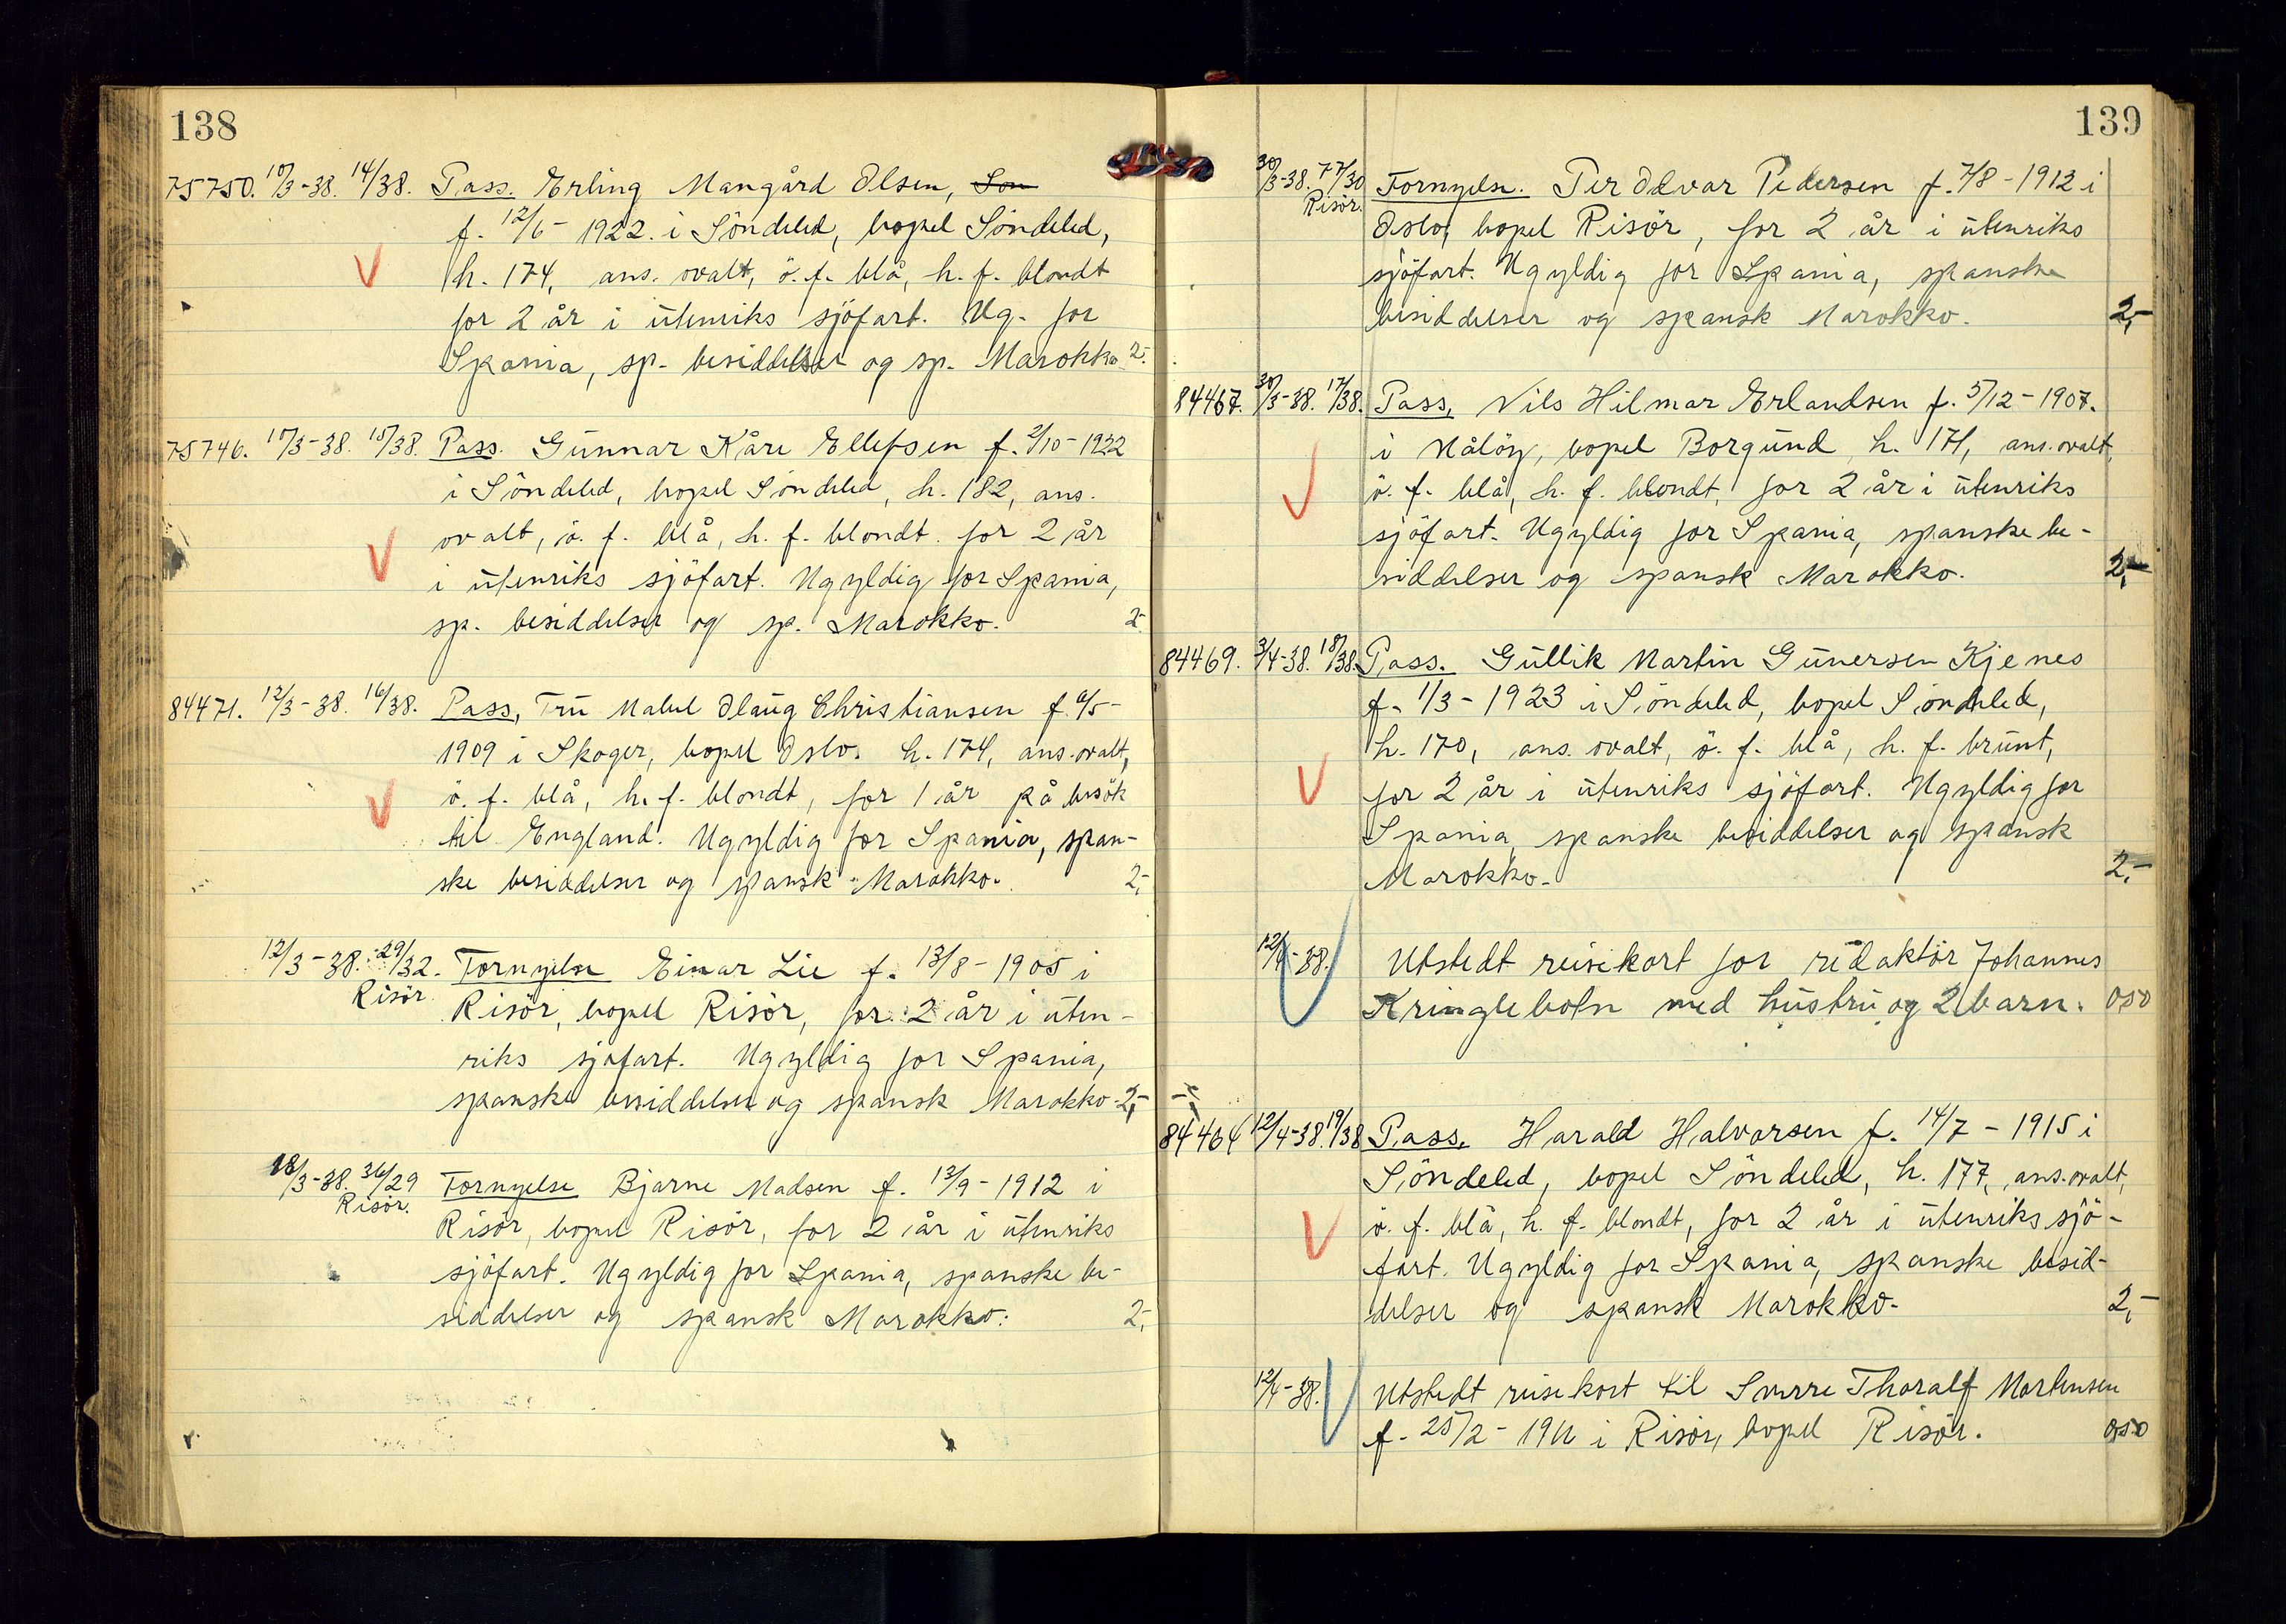 138
75750. 10/3-38. 14/38. Pass. Erling Mangård Olsen, Søn
f. 12/6 - 1922. i Söndeled, bopel Söndeled,
h. 174, ans. ovalt, ö. f. blå, h. f. blondt
for 2 år i ütenriks sjöfart. Ug. for
Spania, sp. besiddelser og sp. Marokko 2-
75746. 11/3-38. 15/38. Pass. Günnar Kåre Ellefsen f. 2/10-1922
i Söndeled, bopel Söndeled, h. 182, ans.
ovalt, ö. f. blå, h. f. blondt. for 2 år
i ütenriks sjöfart. Ugyldig for Spania,
sp. besiddelser og sp. Marokko. 2-
84471. 12/3-38. 16/38. Pass, Frü Mabel Olaüg Christiansen f. 6/5-
1909 i Skoger, bopel Oslo. h. 174, ans. ovalt,
ö. f. blå, h. f. blondt, for 1 år på besök
til England. Ugyldig for Spania, span-
ske besiddelser og spansk Marokko. 2,-
12/3-38. 29/32. Fornyelse Einar Lie f. 13/8-1905 i
Risör Risör, bopel Risör, for 2 år i üten-
riks sjöfart. Ugyldig for Spania,
spanske besiddelser og spansk Marokko. 2,-
18/3-38. 36/29 Fornyelse Bjarne Madsen f. 13/9-1912 i
Risör. Risör, bopel Risör, for 2 år i ütenriks
sjöfart. Ugyldig for Spania, spanske be-
siddelser og spansk Marokko. 2,-
139
30/3-38. 77/30 Fornyelse. Per Odvar Pedersen f. 7/8-1912 i
Risör. Oslo, bopel Risör, for 2 år i ütenriks
sjöfart. Ugyldig for Spania, spanske
besiddelser og spansk Marokko. 2,-
84467. 30/3-38. 17/38. Pass, Nils Hilmar Erlandsen f. 5/12-1907.
i Målöy, bopel Borgünd, h. 171, ans. ovalt,
ö. f. blå, h. f. blondt, for 2 år i ütenriks
sjöfart. Ugyldig for Spania, spanske be-
siddelser og spansk Marokko. 2,-
84469. 3/4-38. 18/38. Pass. Güllik Martin Günersen Kjenes
f. 1/3-1923 i Söndeled, bopel Söndeled,
h. 170, ans. ovalt, ö. f. blå, h. f. brünt,
for 2 år i ütenriks sjöfart. Ugyldig for
Spania, spanske besiddelser og spansk
Marokko. 2,-
12/4-38. Utstedt reisekort for redaktör Johannes
Kringlebotn med hüstrü og 2 barn. 050
84464 12/4-38. 19/38 Pass, Harald Halvorsen f. 14/7-1915 i
Söndeled, bopel Söndeled, h. 177, ans. ovalt,
ö. f. blå, h. f. blondt, for 2 år i ütenriks sjö-
fart. Ugyldig for Spania, spanske besid-
delser og spansk Marokko. 2,-
12/4-38. Utstedt reisekort til Sverre Thoralf Mortensen
f. 25/2-1911 i Risör, bopel Risör. 050